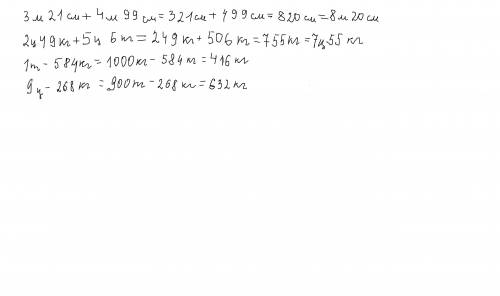 3м 21см + 4м 99см = 321см + 499см = 820см = 8м 20см
2ц 49кг + 5ц 6кг = 249кг + 506кг = 755кг = 7ц 55кг
1т - 584кг = 1000кг - 584кг = 416кг
9ц - 268кг = 900кг - 268кг = 632кг